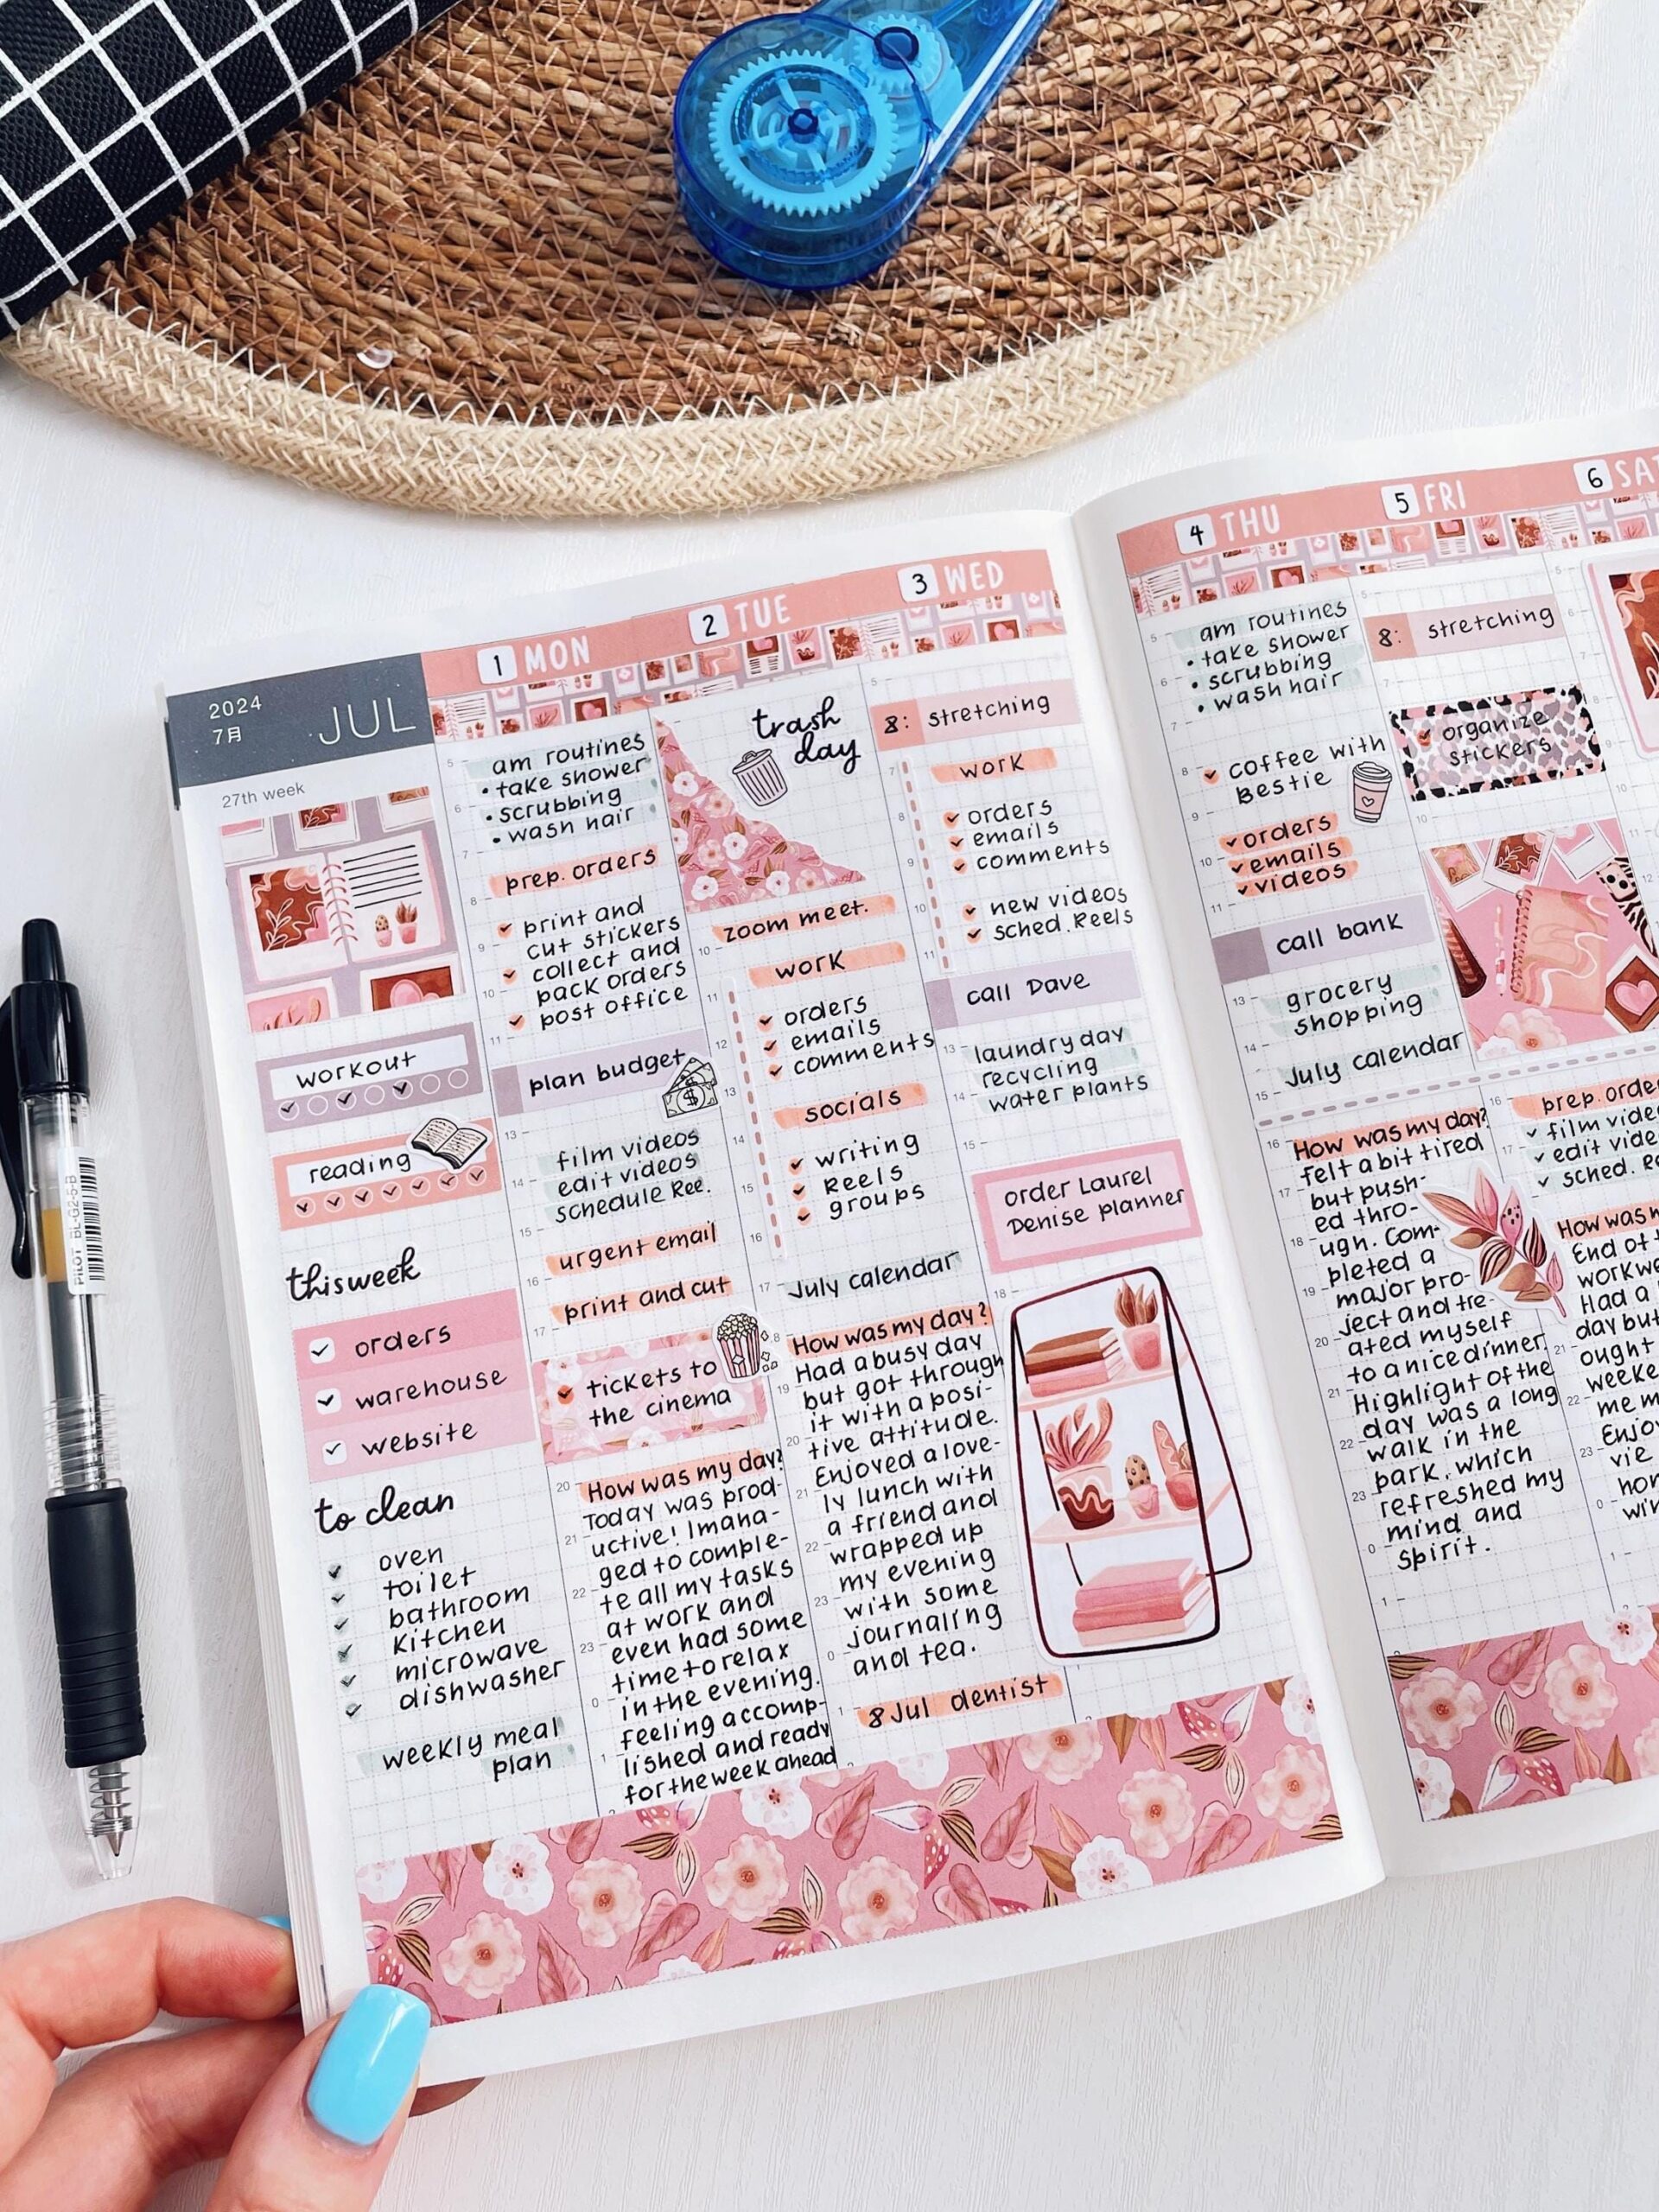 2024
7月
JUL
27th week
workout
reading
this week
orders
warehouse
website
to clean
oven
toilet
bathroom
kitchen
microwave
dishwasher
weekly meal
plan
1 MON
am routines
• take shower
• scrubbing
• wash hair
prep. orders
print and
cut stickers
collect and
pack orders
post office
plan budget
film videos
edit videos
schedule Ree.
urgent email
print and cut
tickets to
the cinema
How was my day?
Today was prod-
uctive! Imana-
ged to comple-
te all my tasks
at work and
even had some
time to relax
in the evening.
feeling accomp-
lished and ready
for the week ahead
2 TUE
trash
day
zoom meet.
work
orders
emails
comments
socials
writing
Reels
groups
July calendar
How was my day?
Had a busy day
but got through
it with a posi-
tive attitude.
Enjoyed a love-
ly lunch with
a friend and
wrapped up
my evening
with some
journalrng
and tea.
8 Jul dentist
3 WED
8: stretching
work
orders
emails
comments
new videos
sched. Reels
call Dave
laundry day
recycling
water plants
order Laurel
Denise planner
4 THU
am routines
• take shower
• scrubbing
• wash hair
coffee with
Bestie
orders
emails
videos
call bank
grocery
shopping
July calendar
How was my day?
felt a bit tired
but push-
ed thro-
ugh. Com-
pleted a
major pro-
ject and tre-
ated myself
to a nice dinner.
Highlight of the
day was a long
walk in the
park, which
refreshed my
mind and
spirit.
5 FRI
8: stretching
organize
stickers
prep. orde
film vide
edit vide
sched. Re
How was m
End of
workwe
Had a
day but
ought
weeke
me m
Enjo
vie
hor
wir
6 SAT
PILOT BL-G2-5-B